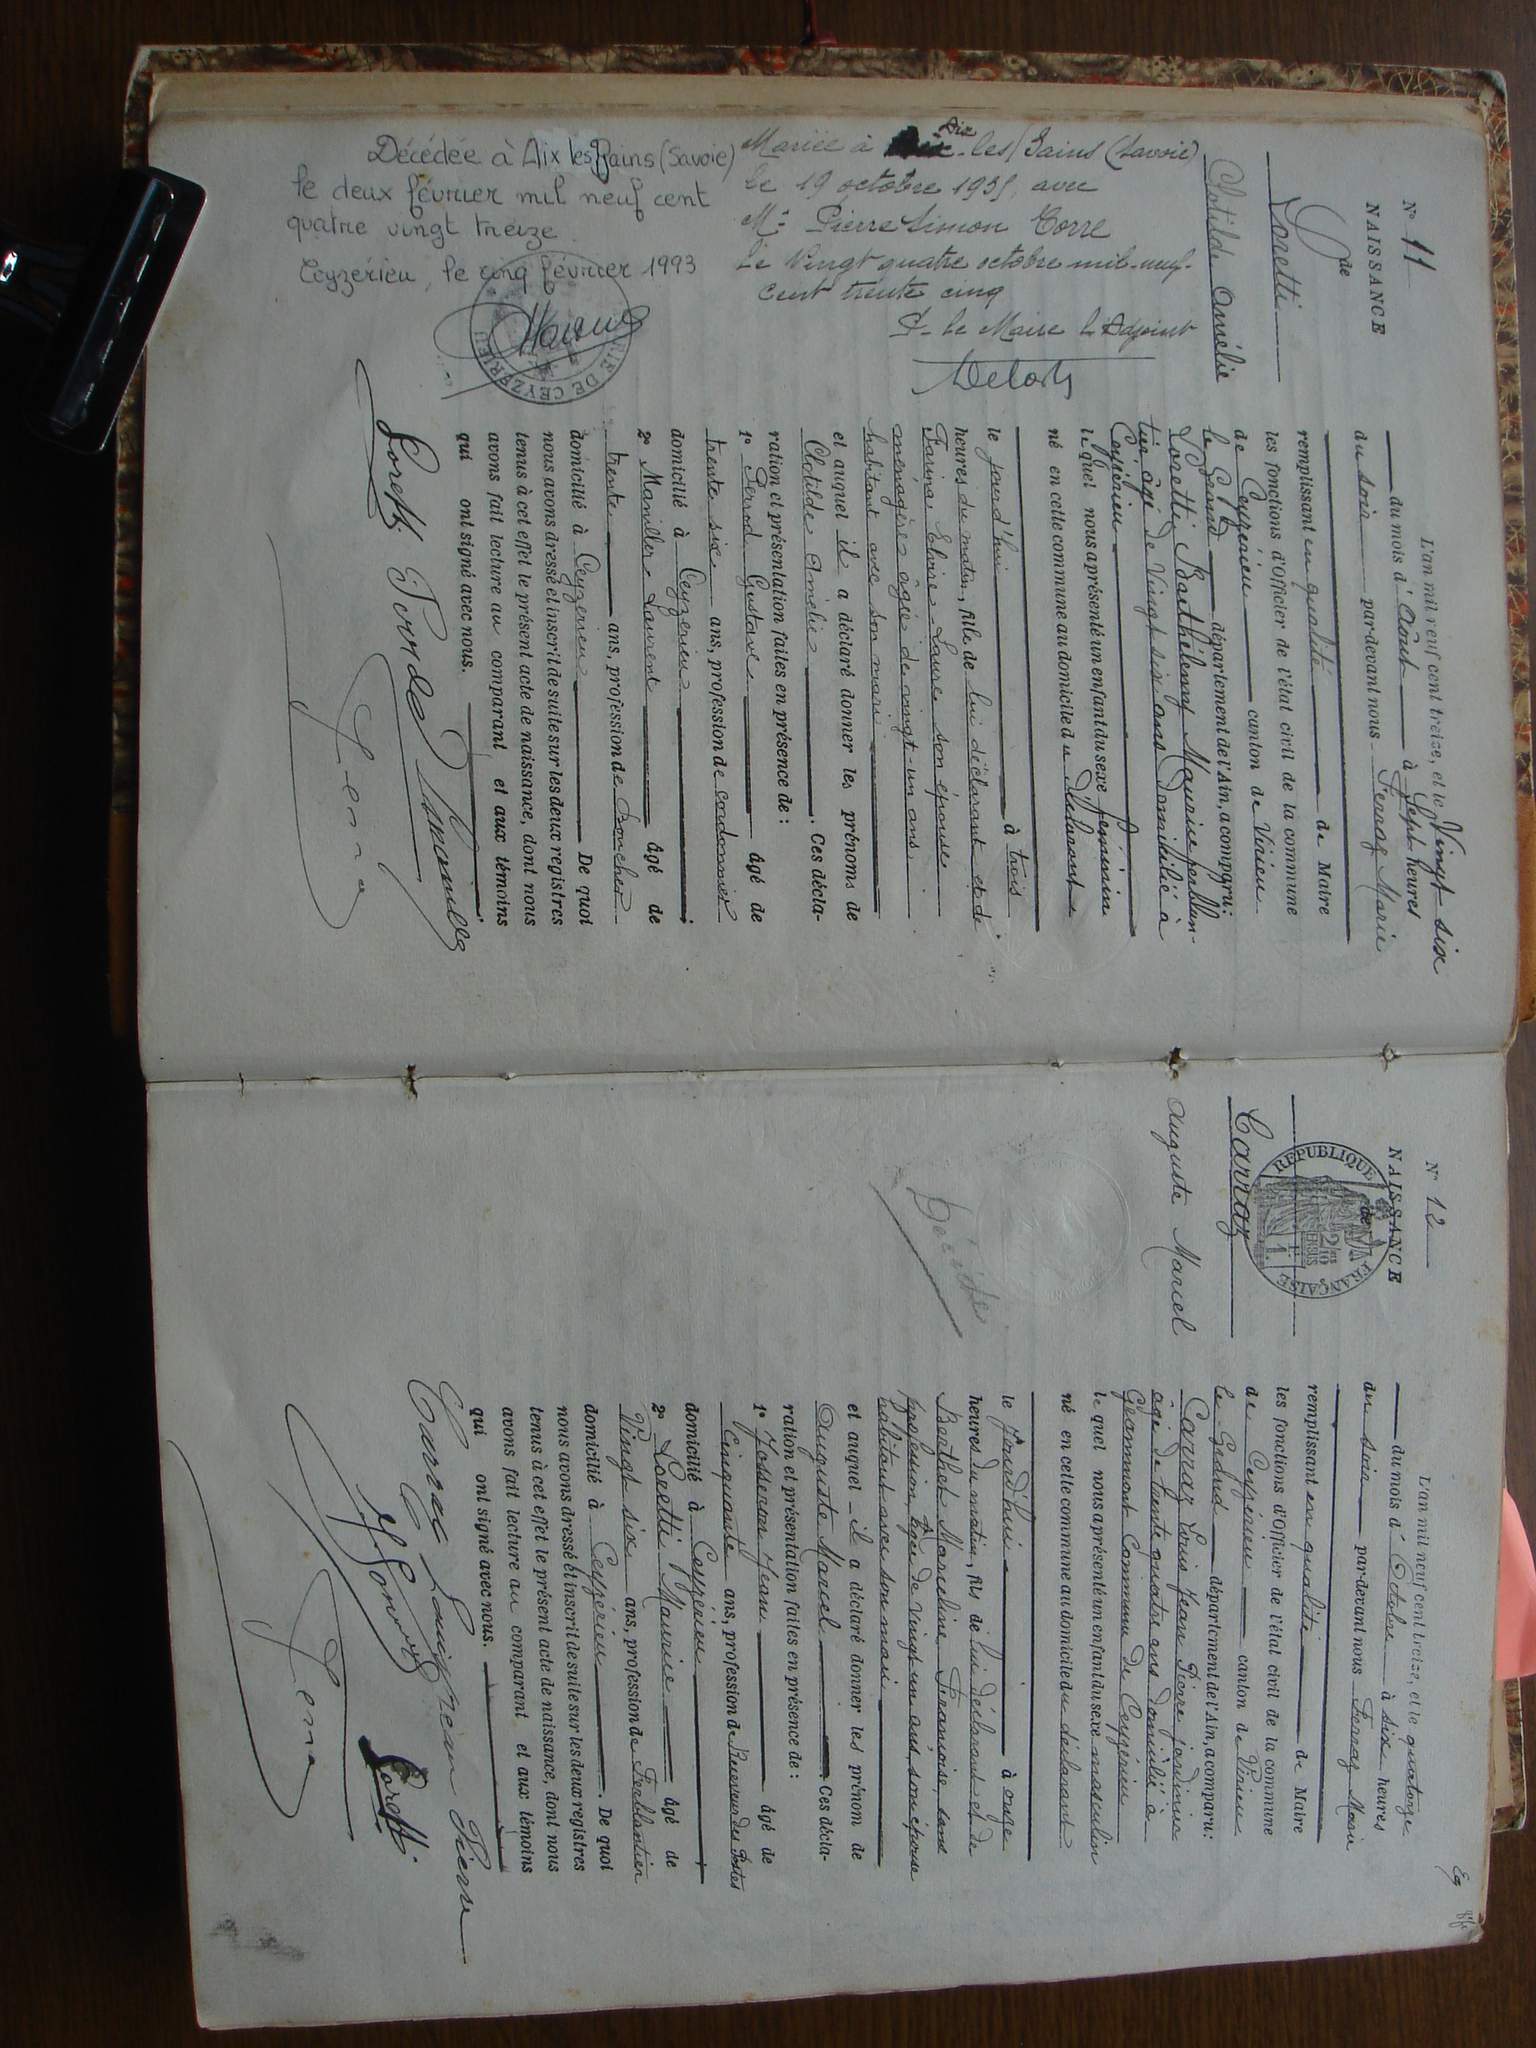 N° 11
NAISSANCE
de
Loretti
Clotilde Amélie
Mariée à Aix-les-Bains (Savoie)
le 19 octobre 1935, avec
Mr Pierre Simon Torre
Le Vingt quatre octobre mil-neuf-
cent trente cinq
P. le Maire l'Adjoint
Décédée à Aix les Bains (Savoie)
le deux février mil neuf cent
quatre vingt treize
Ceyzérieu, le cinq février 1993
MAIRIE DE CEYZERIEU
L'an mil neuf cent treize, et le Vingt-six
du mois d'Août à Sept heures
du soir par-devant nous Ferraz Marie
remplissant en qualité de Maire
les fonctions d'officier de l'état civil de la commune
de Ceyzérieu canton de Virieu
le Grand département de l'Ain, a comparu:
Loretti Barthélemy Maurice ferblan-
tier âgé de Vingt six ans domicilié à
Ceyzérieu
lequel nous a présenté un enfant du sexe féminin
né en cette commune au domicile du déclarant
le jourd'hui à trois
heures du matin, fille de lui déclarant et de
Farina Elvire Laure son épouse
ménagère âgée de vingt-un ans
habitant avec son mari
et auquel il a déclaré donner les prénoms de
Clotilde Amélie. Ces décla-
ration et présentation faites en présence de:
1° Perrod Gustave âgé de
trente six ans, profession de cordonnier
domicilié à Ceyzerieu;
2° Manillier Laurent âgé de
trente ans, profession de boucher
domicilié à Ceyzerieu. De quoi
nous avons dressé et inscrit de suite sur les deux registres
tenus à cet effet le présent acte de naissance, dont nous
avons fait lecture au comparant et aux témoins
qui ont signé avec nous.
Loretti Perrod Manillier
Ferraz
N° 12
NAISSANCE
de
REPUBLIQUE FRANÇAISE
Carraz
Auguste Marcel
Décédé
L'an mil neuf cent treize, et le quatorze
du mois d'Octobre à six heures
du soir par-devant nous Ferraz Marie
remplissant en qualité de Maire
les fonctions d'officier de l'état civil de la commune
de Ceyzerieu canton de Virieu
le Grand département de l'Ain, a comparu:
Carraz Louis Jean Pierre jardinier
âgé de trente quatre ans domicilié à
Grammont Commune de Ceyzerieu
lequel nous a présenté un enfant du sexe masculin
né en cette commune au domicile du déclarant
le jourd'hui à onze
heures du matin, fils de lui déclarant et de
Berthet Marceline Françoise, sans
profession, âgée de Vingt un ans, son épouse
habitant avec son mari
et auquel il a déclaré donner les prénom de
Auguste Marcel Ces décla-
ration et présentation faites en présence de:
1° Josseron Jean âgé de
Cinquante ans, profession de Receveur des Postes
domicilié à Ceyzérieu
2° Loretti Maurice âgé de
Vingt six ans, profession de Ferblantier
domicilié à Ceyzérieu. De quoi
nous avons dressé et inscrit de suite sur les deux registres
tenus à cet effet le présent acte de naissance, dont nous
avons fait lecture au comparant et aux témoins
qui ont signé avec nous.
Carraz Louis Jean Pierre
Loretti
Ferraz